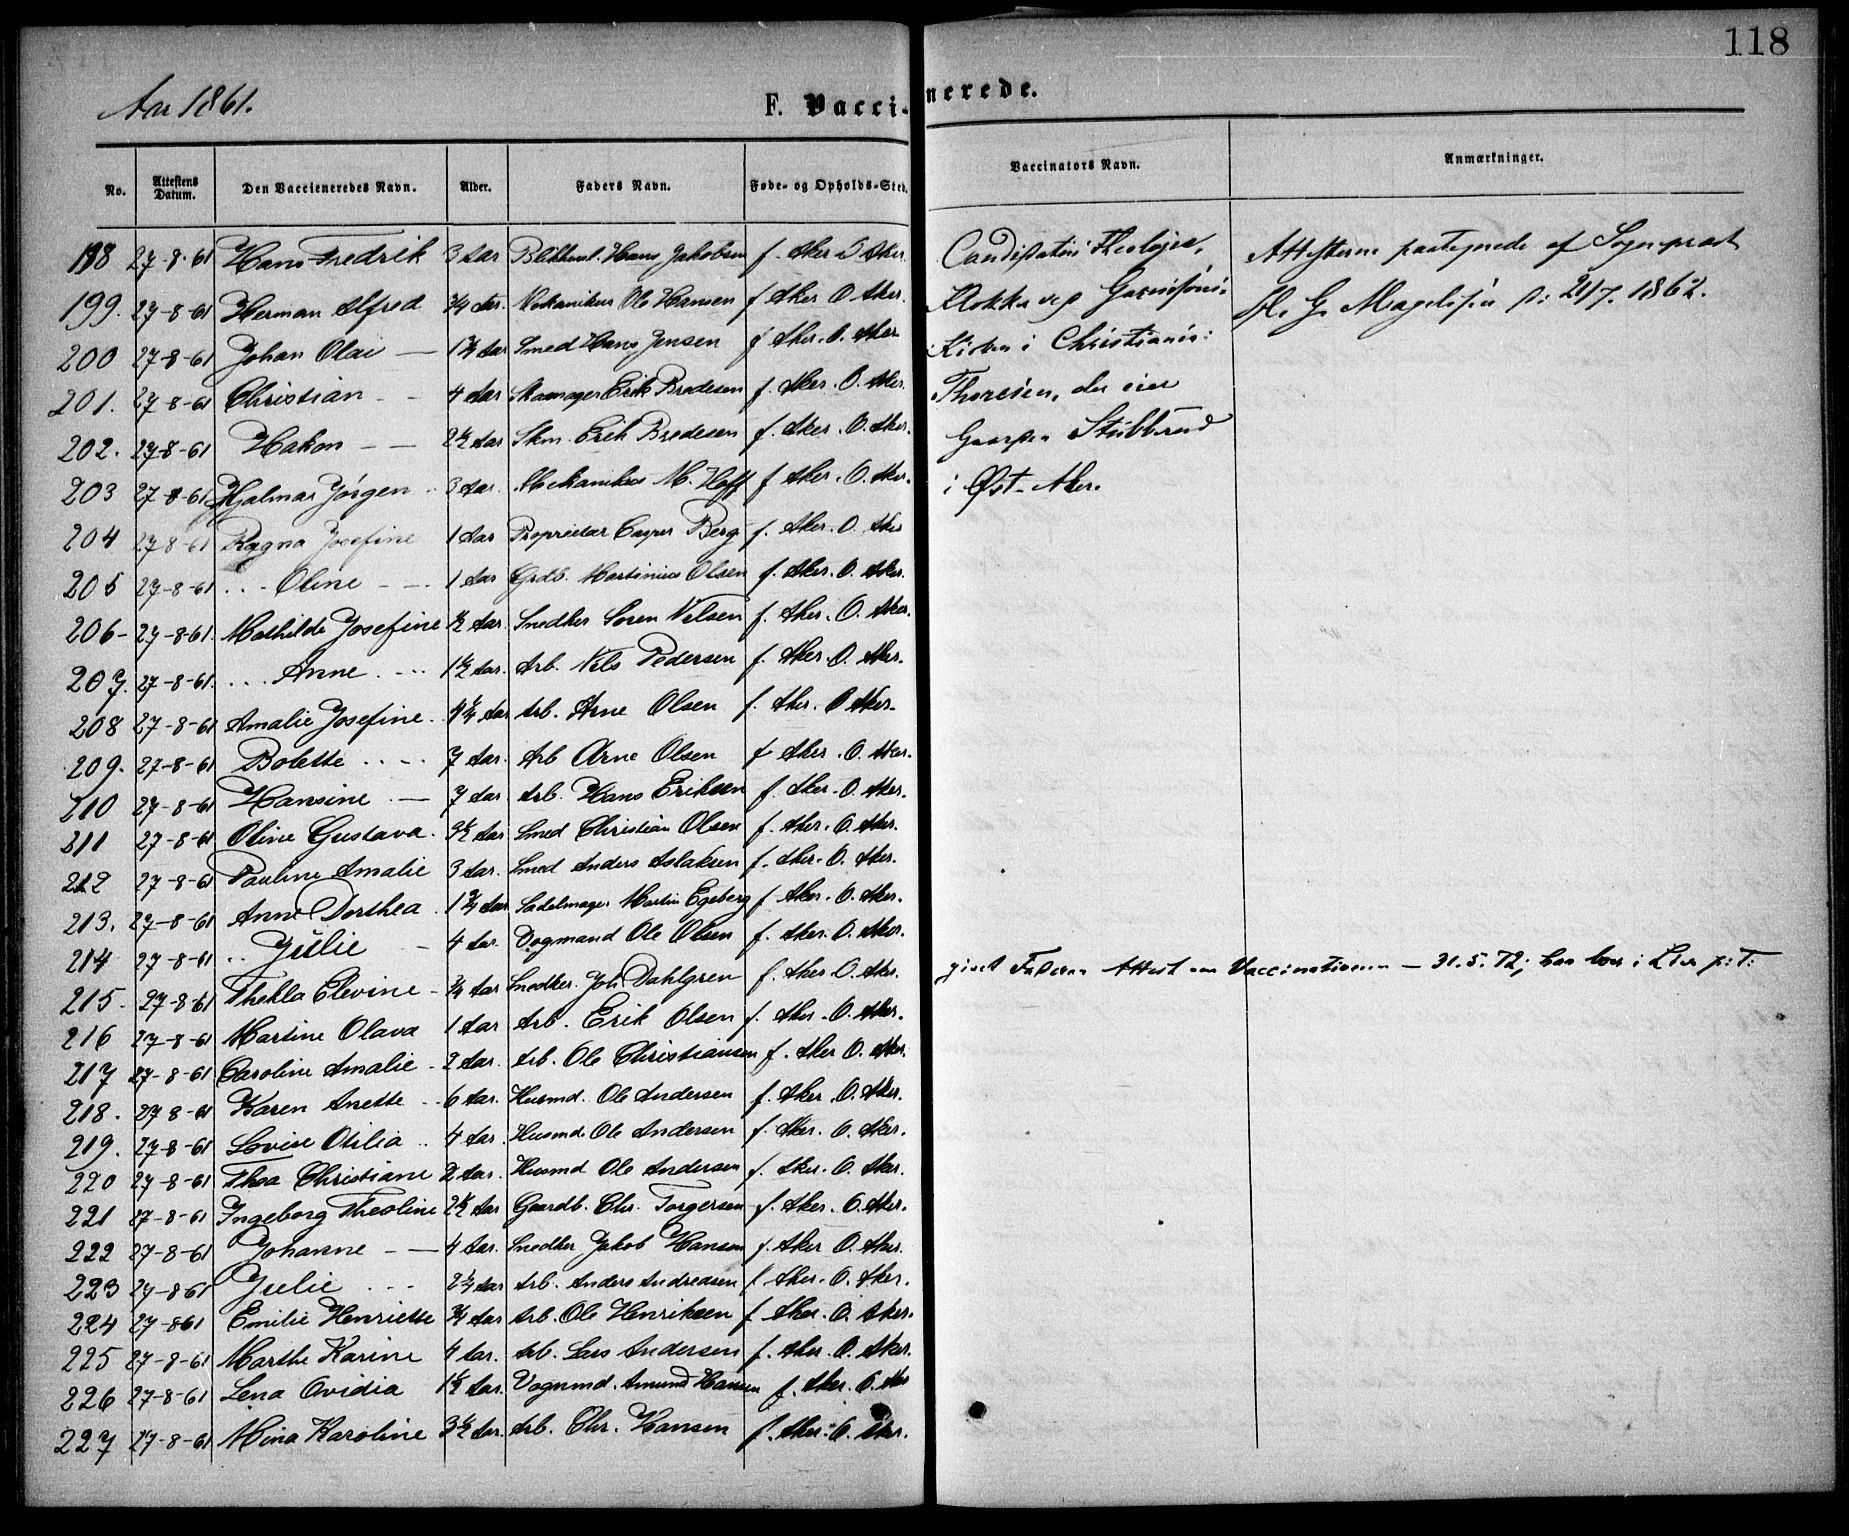 118
Aar 1861.
F. Vaccinerede.
No. Attestens Datum. Den Vaccieneredes Navn. Alder. Faders Navn. Føde- og Opholds-Sted. Vaccinators Navn. Anmærkninger.
198 27-8-61 Hans Fredrik 3 Aar Hans Jakobsen f. Aker O Aker.
199. 27-8-61 Herman Alfred 3/4 Aar. Mekanikus Ole Hansen f Aker O Aker.
200 27-8-61 Johan Olai — 1 3/4 Aar Smed Hans Jensen f Aker. O. Aker
201. 27-8-61 Christian - - 4 Aar Erik Bredesen f. Aker. O. Aker.
202. 27-8-61 Hakon - — 2 1/2 Aar Skm. Erik Bredesen f. Aker. O. Aker.
203 27-8-61 Hjalmar Jörgen 3 Aar. Mekanikus M. Hoff f Aker. O. Aker.
204 27-8-61 Ragna Josefine 1 Aar Proprietær Casper Berg f. Aker. O. Aker
205 27-8-61 . . - Oline - — 1 Aar Grdb. Martinius Olsen f. Aker. O. Aker.
206- 27-8-61. Mathilde Josefine 1/2 Aar. Snedker Søren Nilsen f. Aker. O. Aker.
207. 27-8-61. . . . Anne . - - - 1 1/2 Aar. Arb. Nils Pedersen f. Aker. O. Aker.
208 27-8-61 Amalie Josefine. 4 1/4 Aar Arb. Arne Olsen f. Aker. O Aker.
209. 27-8-61 Bolette . . - . 7 Aar. Arb Arne Olsen f Aker. O. Aker.
210 27-8-61 Hansine . — 7 Aar. Arb. Hans Eriksen f. Aker. O. Aker.
211 27-8-61 Oline Gustava. 3 1/2 Aar Smed Christian Olsen f. Aker. O. Aker.
212 27-8-61 Pauline Amalie 3 Aar. Smed Anders Aslaksen f. Aker. O. Aker.
213. 27-8-61 Anne Dorthea. 1 3/4 Aar Sadelmager Martin Egeberg f Aker. O. Aker.
214 27-8-61 . . Julie - 4 Aar. Vogmand Ole Olsen f. Aker. O. Aker.
215. 27-8-61 Thekla Elevine - 3/4 Aar Snedker. Joh. Dahlgren f. Aker O. Aker.
216 27-8-61 Martine Olava 1 Aar Arb. Erik Olsen f. Aker. O. Aker.
217 27-8-61 Caroline Amalie - 2 Aar. Arb. Ole Christiansen f. Aker O. Aker.
218. 27-8-61 Karen Anette - - 6 Aar. Husmd. Ole Andersen f. Aker. O. Aker.
219. 27-8-61 Lovise Otilia . . 4 Aar. Husmd. Ole Andersen f. Aker. O. Aker.
220 27-8-61 Thea Christiane 2 Aar. Husmd Ole Andersen f. Aker. O. Aker.
221 27-8-61 Ingeborg Theoline 2 1/2 Aar Gaardb. Chr. Torgersen f. Aker. O. Aker.
222 27-8-61 Johanne - — 4 Aar. Snedker Jakob Hansen f. Aker O. Aker.
223 27-8-61 Julie . - - 2 1/4 Aar Arb. Anders Andreasen f Aker. O. Aker.
224 27-8-61 Emilie Henriette 3/4 Aar Arb. Ole Henriksen f Aker. O. Aker.
225 27-8-61 Marthe Karine 4 Aar. Arb. Lars Andersen f. Aker. O. Aker.
226 27-8-61 Lena Ovidia 1 1/2 Aar. Vognmd. Amund Hansen f. Aker. O. Aker
227 27-8-61 Mina Karoline 3 1/2 Aar. Arb. Chr. Hansen f. Aker. O. Aker.
Candidatus Theologiæ,
Klokker ved Garnisons-
Kirken i Christiania:
Thoresen, der eier
Gaarden Stubberud
i Øst-Aker.
Attesterne paategnede af Sognepræst
H. G. Magelssen d: 21/7. 1862.
givet Faderen Attest om Vaccinationen — 31.5.72; han bor i p: T: